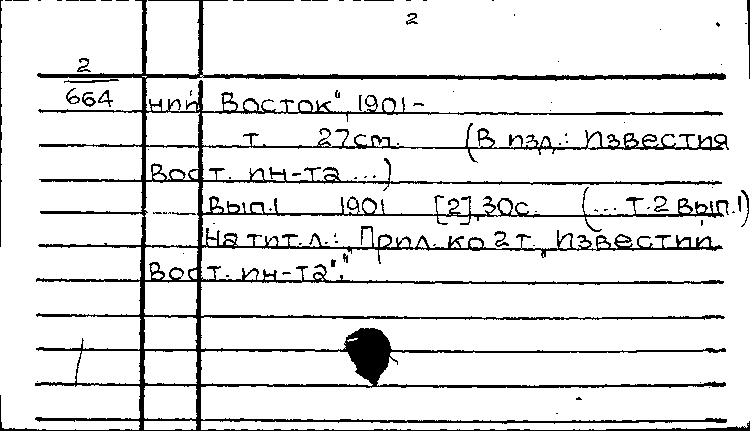 2
2
664
ний Восток", 1901-
т. 27см. (В изд.: Известия
Вост. ин-та ...)
Вып.1 1901 [2], 30с. (... т.2 вып.1)
На тит. л.: „Прил. ко 2 т. „Известий
Вост. ин-та".